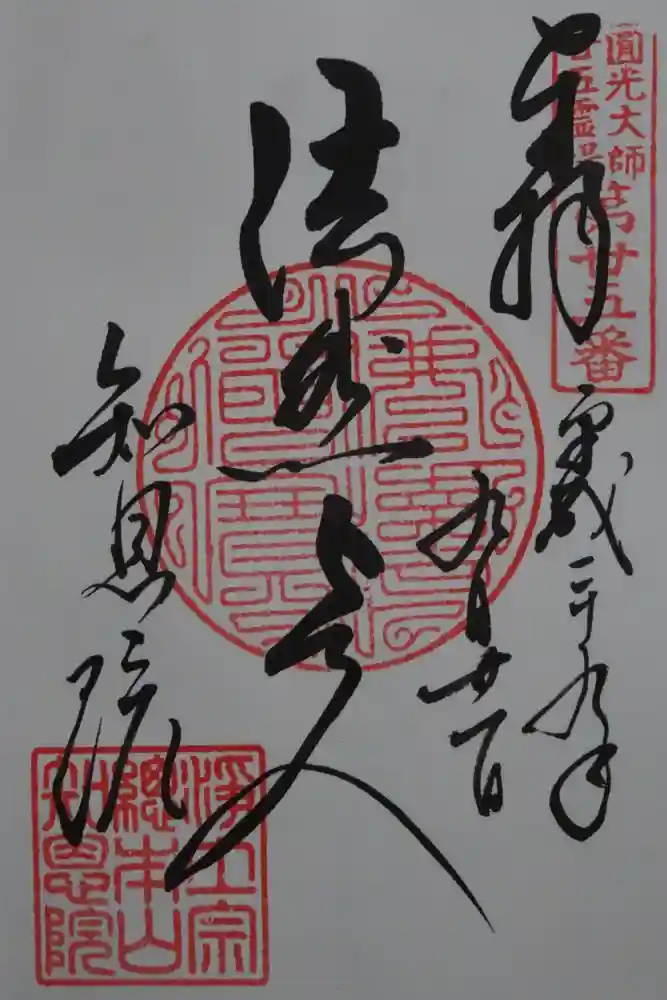 圓光大師
廿五霊場
第廿五番
奉拝
平成二十九年
九月廿一日
法然上人
知恩院
淨土宗
總本山
知恩院